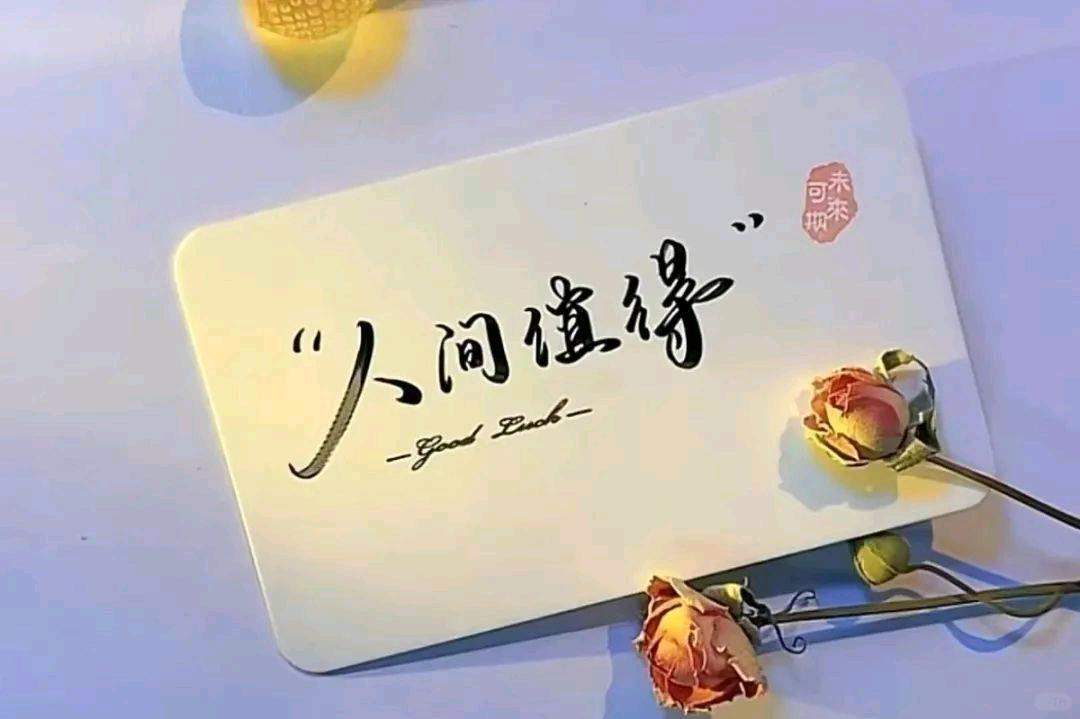 “人间值得”
—Good Luck—
未來
可期